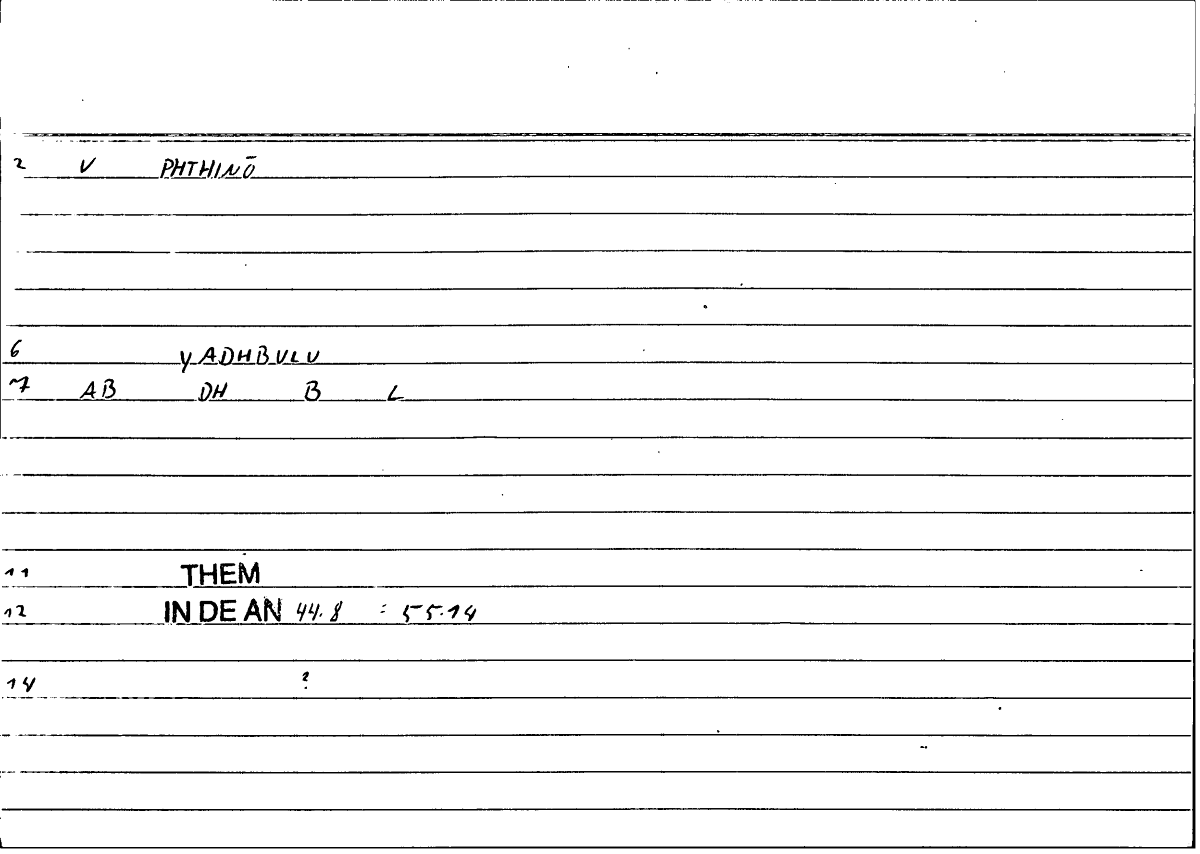 2 V PHTHINŌ
6 YADHBULU
7 AB DH B L
11 THEM
12 IN DE AN 44.8 : 55.14
14 ?